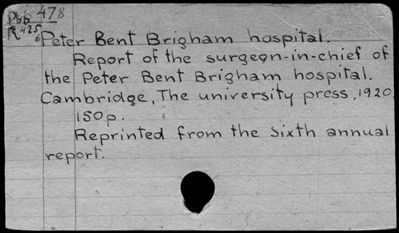 478
Peter Bent Brigham hospital.
Report of the surgeon-in-chief of
the Peter Bent Brigham hospital.
Cambridge, The university press, 1920.
150p.
Reprinted from the sixth annual
report.